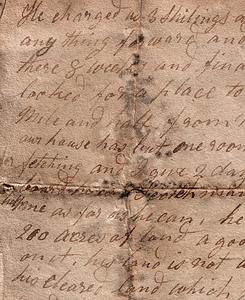 He charged us 3 Shilings a
any thing forward and
there 3 weeks and fina
looked for a place to
Mile and half from
our house has but one room
fetching and I give 2 day
me as far as he can, he
200 acres of land a good
on it his land is not a
his cleared land which